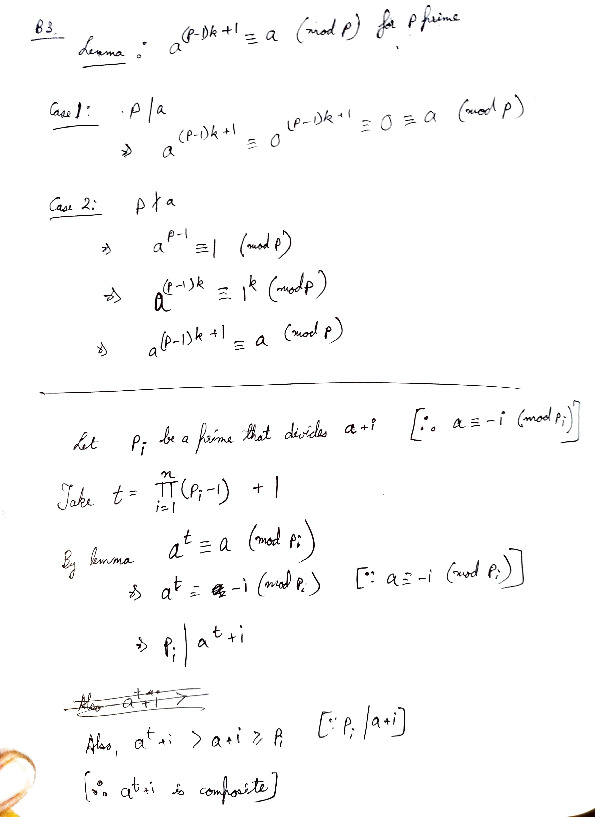 B3.
Lemma : a^{(p-1)k+1} ≡ a (mod p) for p prime
Case 1: p | a
⇒ a^{(p-1)k+1} ≡ 0^{(p-1)k+1} ≡ 0 ≡ a (mod p)
Case 2: p ∤ a
⇒ a^{p-1} ≡ 1 (mod p)
⇒ a^{(p-1)k} ≡ 1^k (mod p)
⇒ a^{(p-1)k+1} ≡ a (mod p)
Let p_i be a prime that divides a+i [∴ a ≡ -i (mod p_i)]
Take t = ∏_{i=1}^{n} (p_i-1) + 1
By lemma a^t ≡ a (mod p_i)
⇒ a^t ≡ -i (mod p_i) [∵ a ≡ -i (mod p_i)]
⇒ p_i | a^t+i
Also, a^t+i > a+i ≥ p_i [∵ p_i | a+i]
[∴ a^t+i is composite]